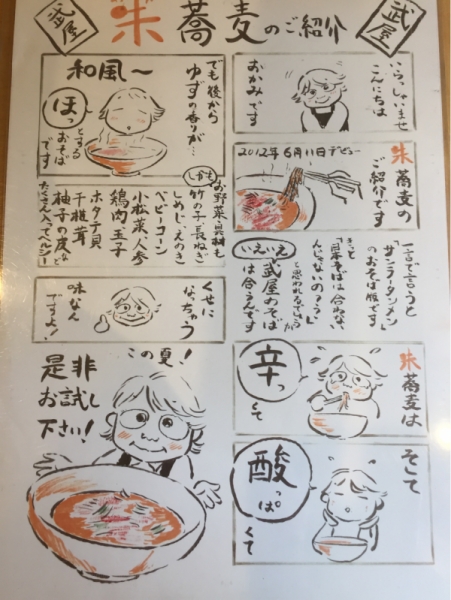 武屋
朱蕎麦のご紹介
武屋
いらっしゃいませ
こんにちは
おかみです
2012年6月11日デビュー
朱蕎麦の
ご紹介です
一言で言うと
「サンラータンメン」
のおそば版です
きっと
「日本そばは合わない
んじゃないのぅ？」
と思われるでしょうが
いえいえ
武屋のそば
は合うんです
朱蕎麦は
辛っくて
そして
酸っぱくて
でも後から
ゆずの香りが…
和風〜
ほっ
とする
おそば
です
しかも
お野菜・具材も
竹の子・長ねぎ
しめじ・えのき
ベビーコーン
小松菜・人参
鶏肉・玉子
ホタテ貝
干椎茸
柚子の皮など
たくさん入ってヘルシー
くせに
なっちゃう
味なん
ですよ！
この夏！
是非
お試し
下さい！